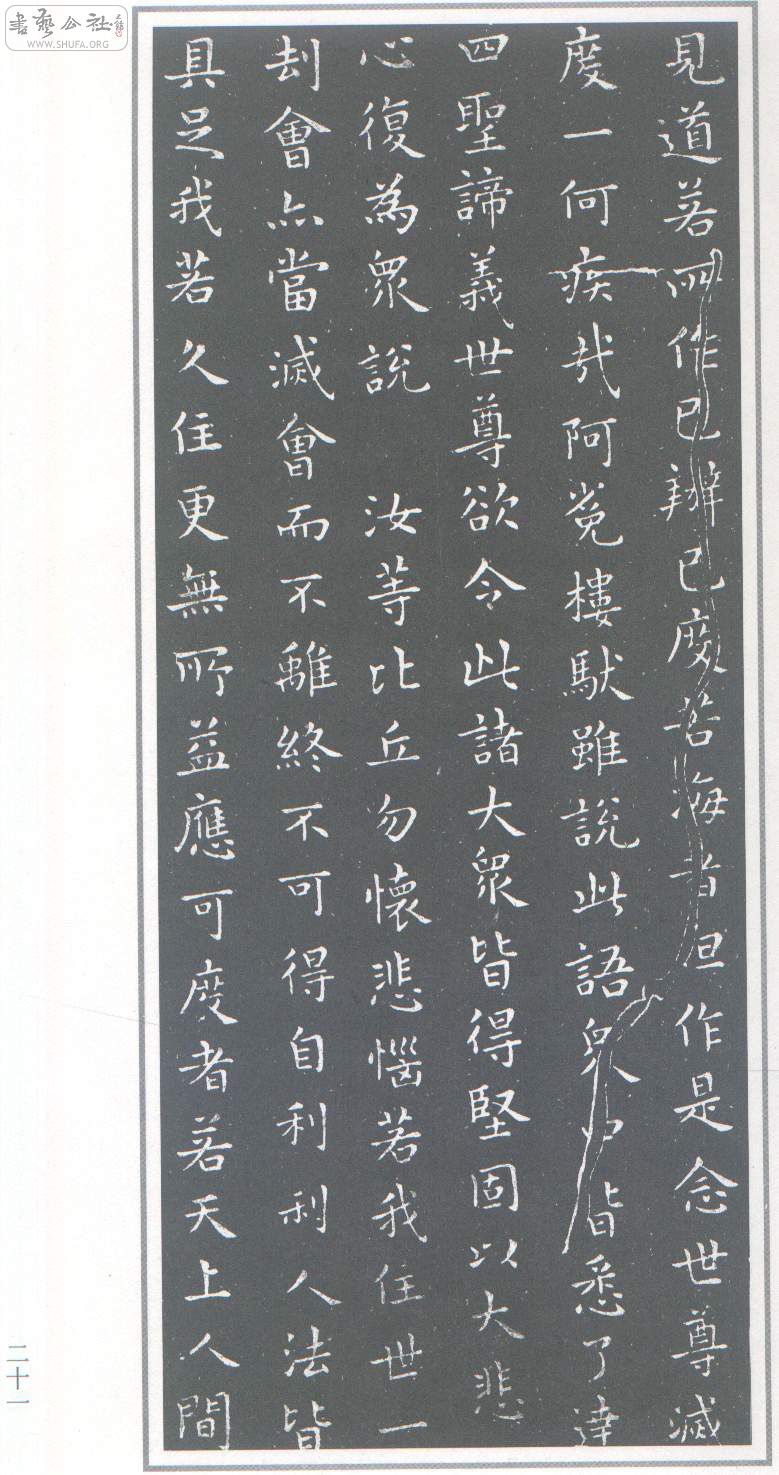 見道若所作已辦已度苦海者但作是念世尊滅
度一何疾哉阿㝹樓馱雖說此語眾中皆悉了達
四聖諦義世尊欲令此諸大眾皆得堅固以大悲
心復為眾說 汝等比丘勿懷悲惱若我住世一
劫會亦當滅會而不離終不可得自利利人法皆
具足我若久住更無所益應可度者若天上人間
二十一
書藝公社
WWW.SHUFA.ORG